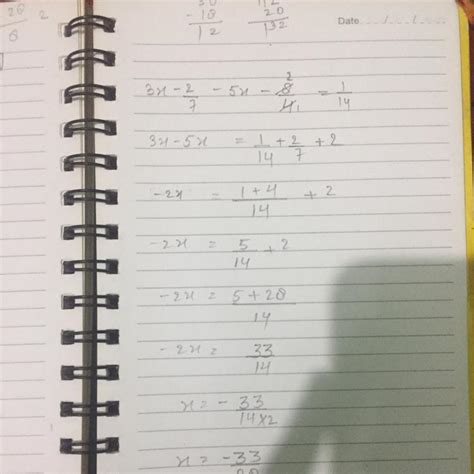 28 2
8
30 12
-18 20
12 132
Date ... / ... / ...
3x - 2/7 - 5x - 8/4 2 1 = 1/14
3x - 5x = 1/14 + 2/7 + 2
-2x = 1 + 4/14 + 2
-2x = 5/14 + 2
-2x = 5 + 28/14
-2x = 33/14
x = - 33/14×2
x = -33/28